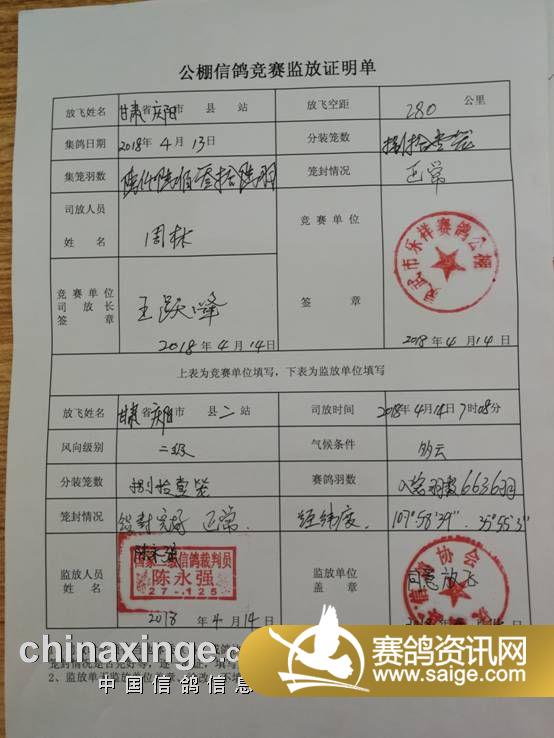 公棚信鸽竞赛监放证明单
放飞姓名 甘肃省庆阳市 县 站 放飞空距 280 公里
集鸽日期 2018年4月13日 分装笼数 捌拾壹笼
集笼羽数 陆仟陆佰叁拾陆羽 笼封情况 正常
司放人员
姓 名 周林 竞赛单位
签 章
灵武市乐祥赛鸽公棚
竞赛单位
司放长
签 章 王跃峰
2018年4月14日 2018年4月14日
上表为竞赛单位填写，下表为监放单位填写
放飞姓名 甘肃省庆阳市 县二站 司放时间 2018年4月14日7时08分
风向级别 二级 气候条件 多云
分装笼数 捌拾壹笼 赛鸽羽数 总羽数6636羽
笼封情况 铅封完好 正常 经纬度 107°58'39" 35°55'3"
监放人员
姓 名 陈永强
国家一级信鸽裁判员
陈永强
27-125
监放单位
盖 章 同意放飞
信鸽协会
2018年4月14日
笼封情况是否完好等
chinaxinge.com
中国信鸽信息
赛鸽资讯网
www.saige.com